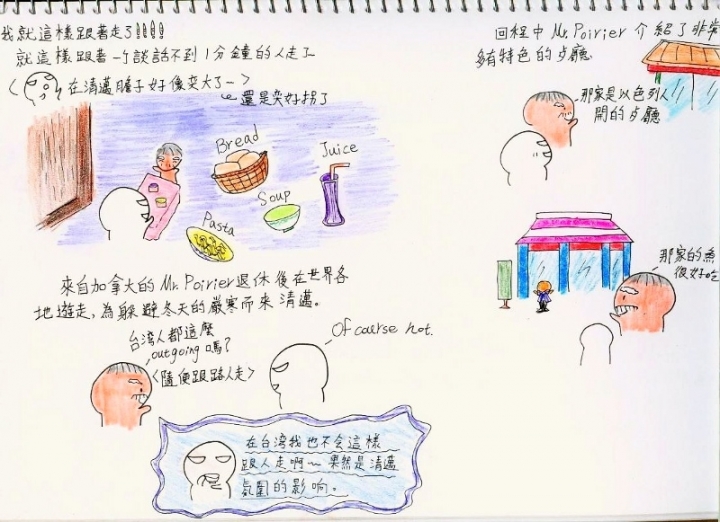 我就這樣跟著走了!!!!
就這樣跟著一个談話不到1分鐘的人走了
<在清邁膽子好像变大了~>
還是变好拐了
Bread
Juice
Soup
Pasta
來自加拿大的Mr. Poirier退休後在世界各
地遊走,為躲避冬天的嚴寒而來清邁。
台湾人都這麼
outgoing嗎?
<隨便跟路人走>
Of course not.
在台湾我也不会這樣
跟人走啊~果然是清邁
氛圍的影响。
回程中Mr. Poirier介紹了非常
多有特色的歺廳
那家是以色列人
開的歺廳
那家的魚
很好吃